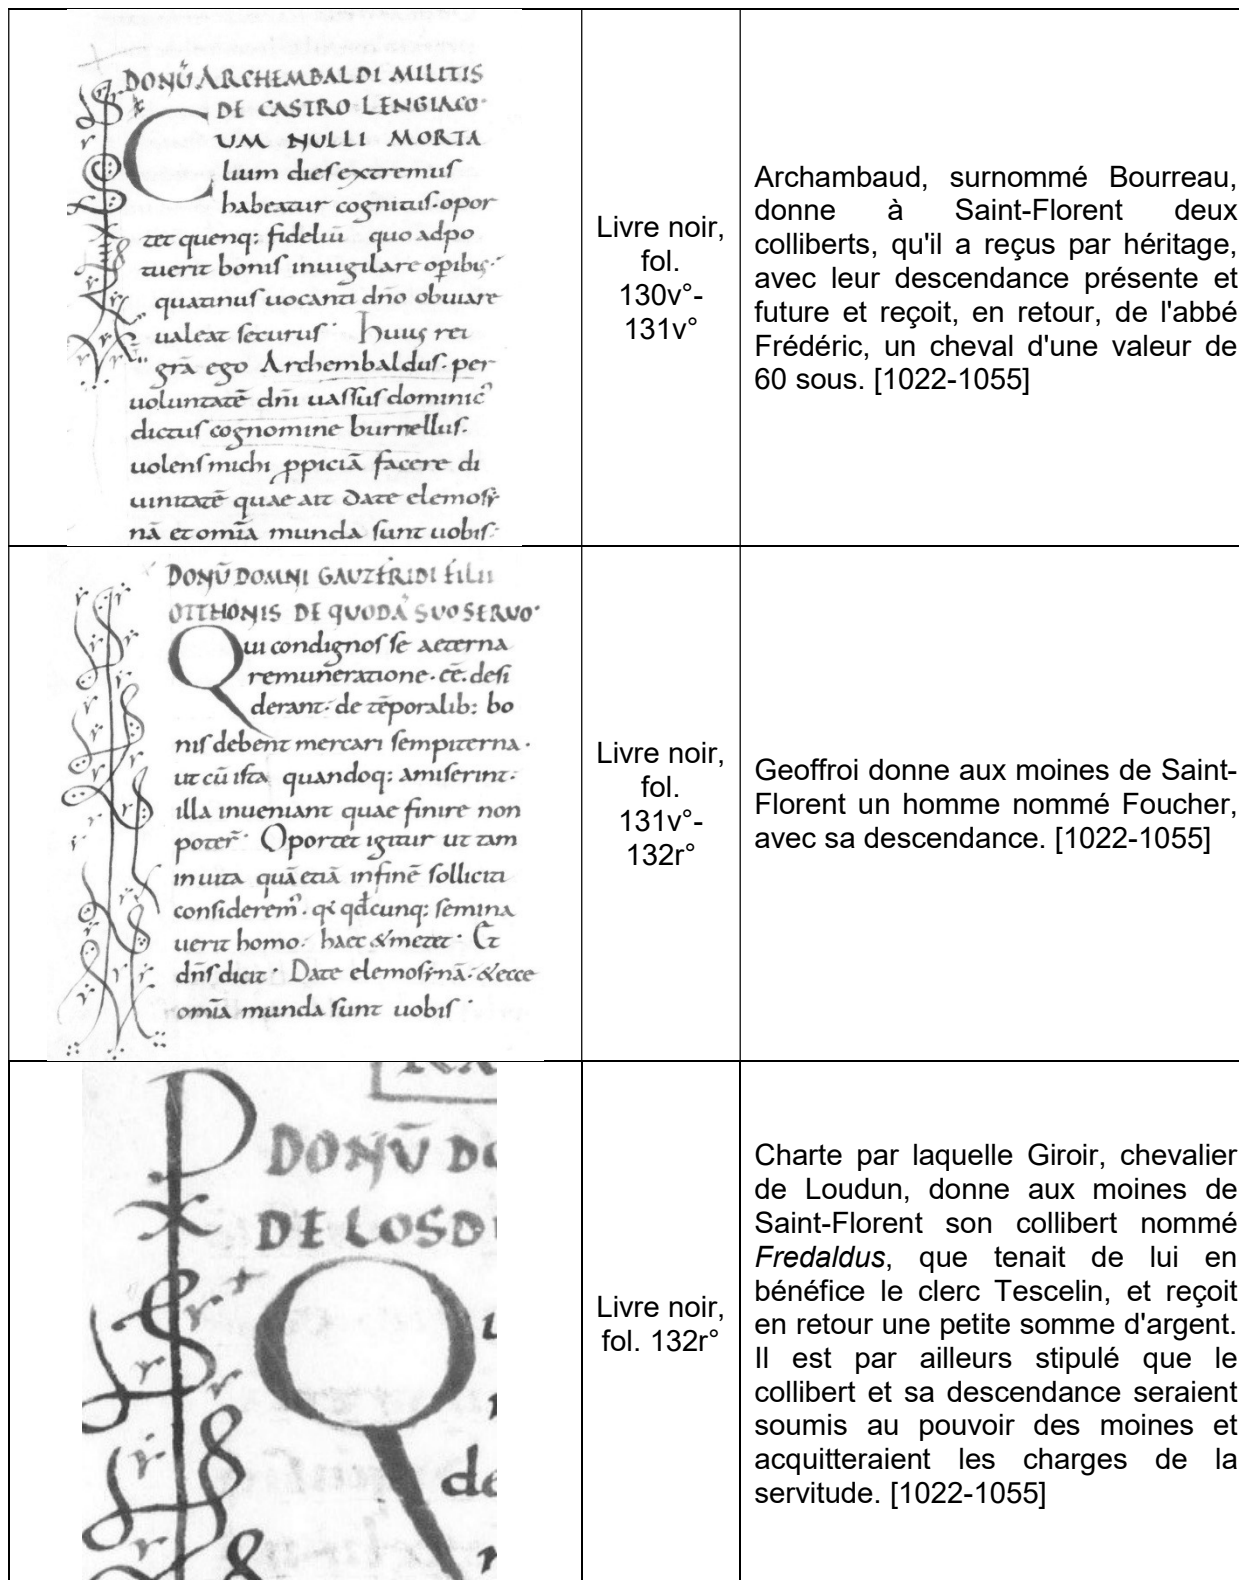 DONŪ ARCHEMBALDI MILITIS
DE CASTRO LENGIACO·
CUM NULLI MORTA
lium dies extremus
habeatur cognitus· opor
tet quenq: fideliū quo adpo
tuerit bonis inuigilare opibus·
quatinus uocanti dño obuiare
ualeat securus· Huius rei
grā ego Archembaldus· per
uoluntatē dñi uassus dominic᾿
dictus cognomine burrellus·
uolens michi ppiciā facere di
uinitatē quae ait Date elemosy
nā et omīa munda sunt uobis·
Livre noir,
fol.
130v°-
131v°
Archambaud, surnommé Bourreau,
donne à Saint-Florent deux
colliberts, qu'il a reçus par héritage,
avec leur descendance présente et
future et reçoit, en retour, de l'abbé
Frédéric, un cheval d'une valeur de
60 sous. [1022-1055]
DONŪ DOMNI GAUZFRIDI FILII
OTTHONIS DE QUODĀ SUO SERUO·
Qui condignos se aeterna
remuneratione· cē· desi
derant· de tēporalib: bo
nis debent mercari sempiterna·
ut cū ista quandoq: amiserint·
illa inueniant quae finire non
poter̄· Oportet igitur ut tam
in uita quā etiā in finē solliciti
considerem᾿· qd̄cunq: semina
uerit homo· haec & metet· Et
dñs dicit· Date elemosynā· & ecce
omīa munda sunt uobis·
Livre noir,
fol.
131v°-
132r°
Geoffroi donne aux moines de Saint-
Florent un homme nommé Foucher,
avec sa descendance. [1022-1055]
DONŪ DO
DE LOSD
Q
de
Livre noir,
fol. 132r°
Charte par laquelle Giroir, chevalier
de Loudun, donne aux moines de
Saint-Florent son collibert nommé
Fredaldus, que tenait de lui en
bénéfice le clerc Tescelin, et reçoit
en retour une petite somme d'argent.
Il est par ailleurs stipulé que le
collibert et sa descendance seraient
soumis au pouvoir des moines et
acquitteraient les charges de la
servitude. [1022-1055]